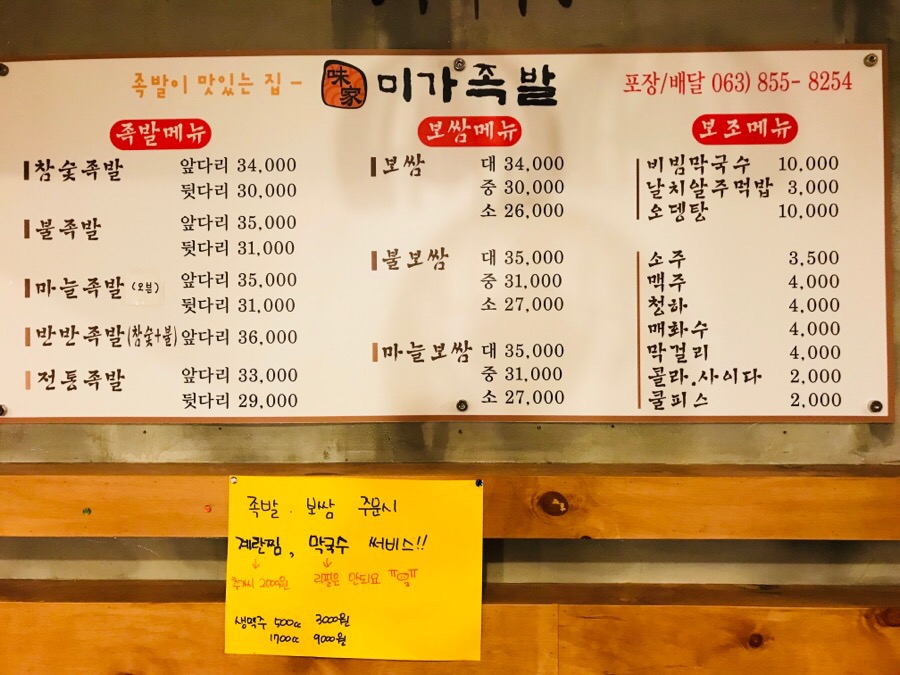 족발이 맛있는 집 - 味家 미가족발 포장/배달 063) 855- 8254
족발메뉴
참숯족발 앞다리 34,000
뒷다리 30,000
불족발 앞다리 35,000
뒷다리 31,000
마늘족발 (오븐) 앞다리 35,000
뒷다리 31,000
반반족발(참숯+불) 앞다리 36,000
전통족발 앞다리 33,000
뒷다리 29,000
보쌈메뉴
보쌈 대 34,000
중 30,000
소 26,000
불보쌈 대 35,000
중 31,000
소 27,000
마늘보쌈 대 35,000
중 31,000
소 27,000
보조메뉴
비빔막국수 10,000
날치알주먹밥 3,000
오뎅탕 10,000
소주 3,500
맥주 4,000
청하 4,000
매화수 4,000
막걸리 4,000
콜라.사이다 2,000
쿨피스 2,000
족발 . 보쌈 주문시
계란찜, 막국수 써비스!!
추가시 2000원 리필은 안되요 ㅠㅠ
생맥주 500cc 3000원
1700cc 9000원